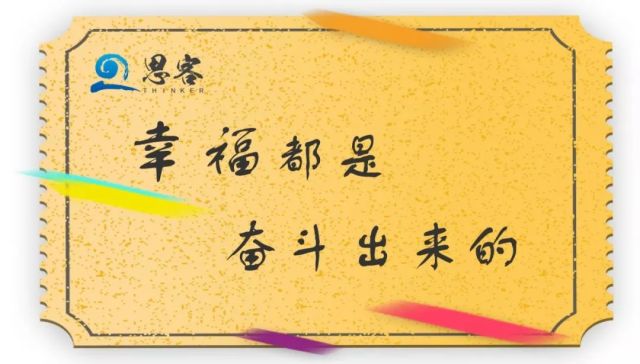 思客
THINKER
幸福都是
奋斗出来的